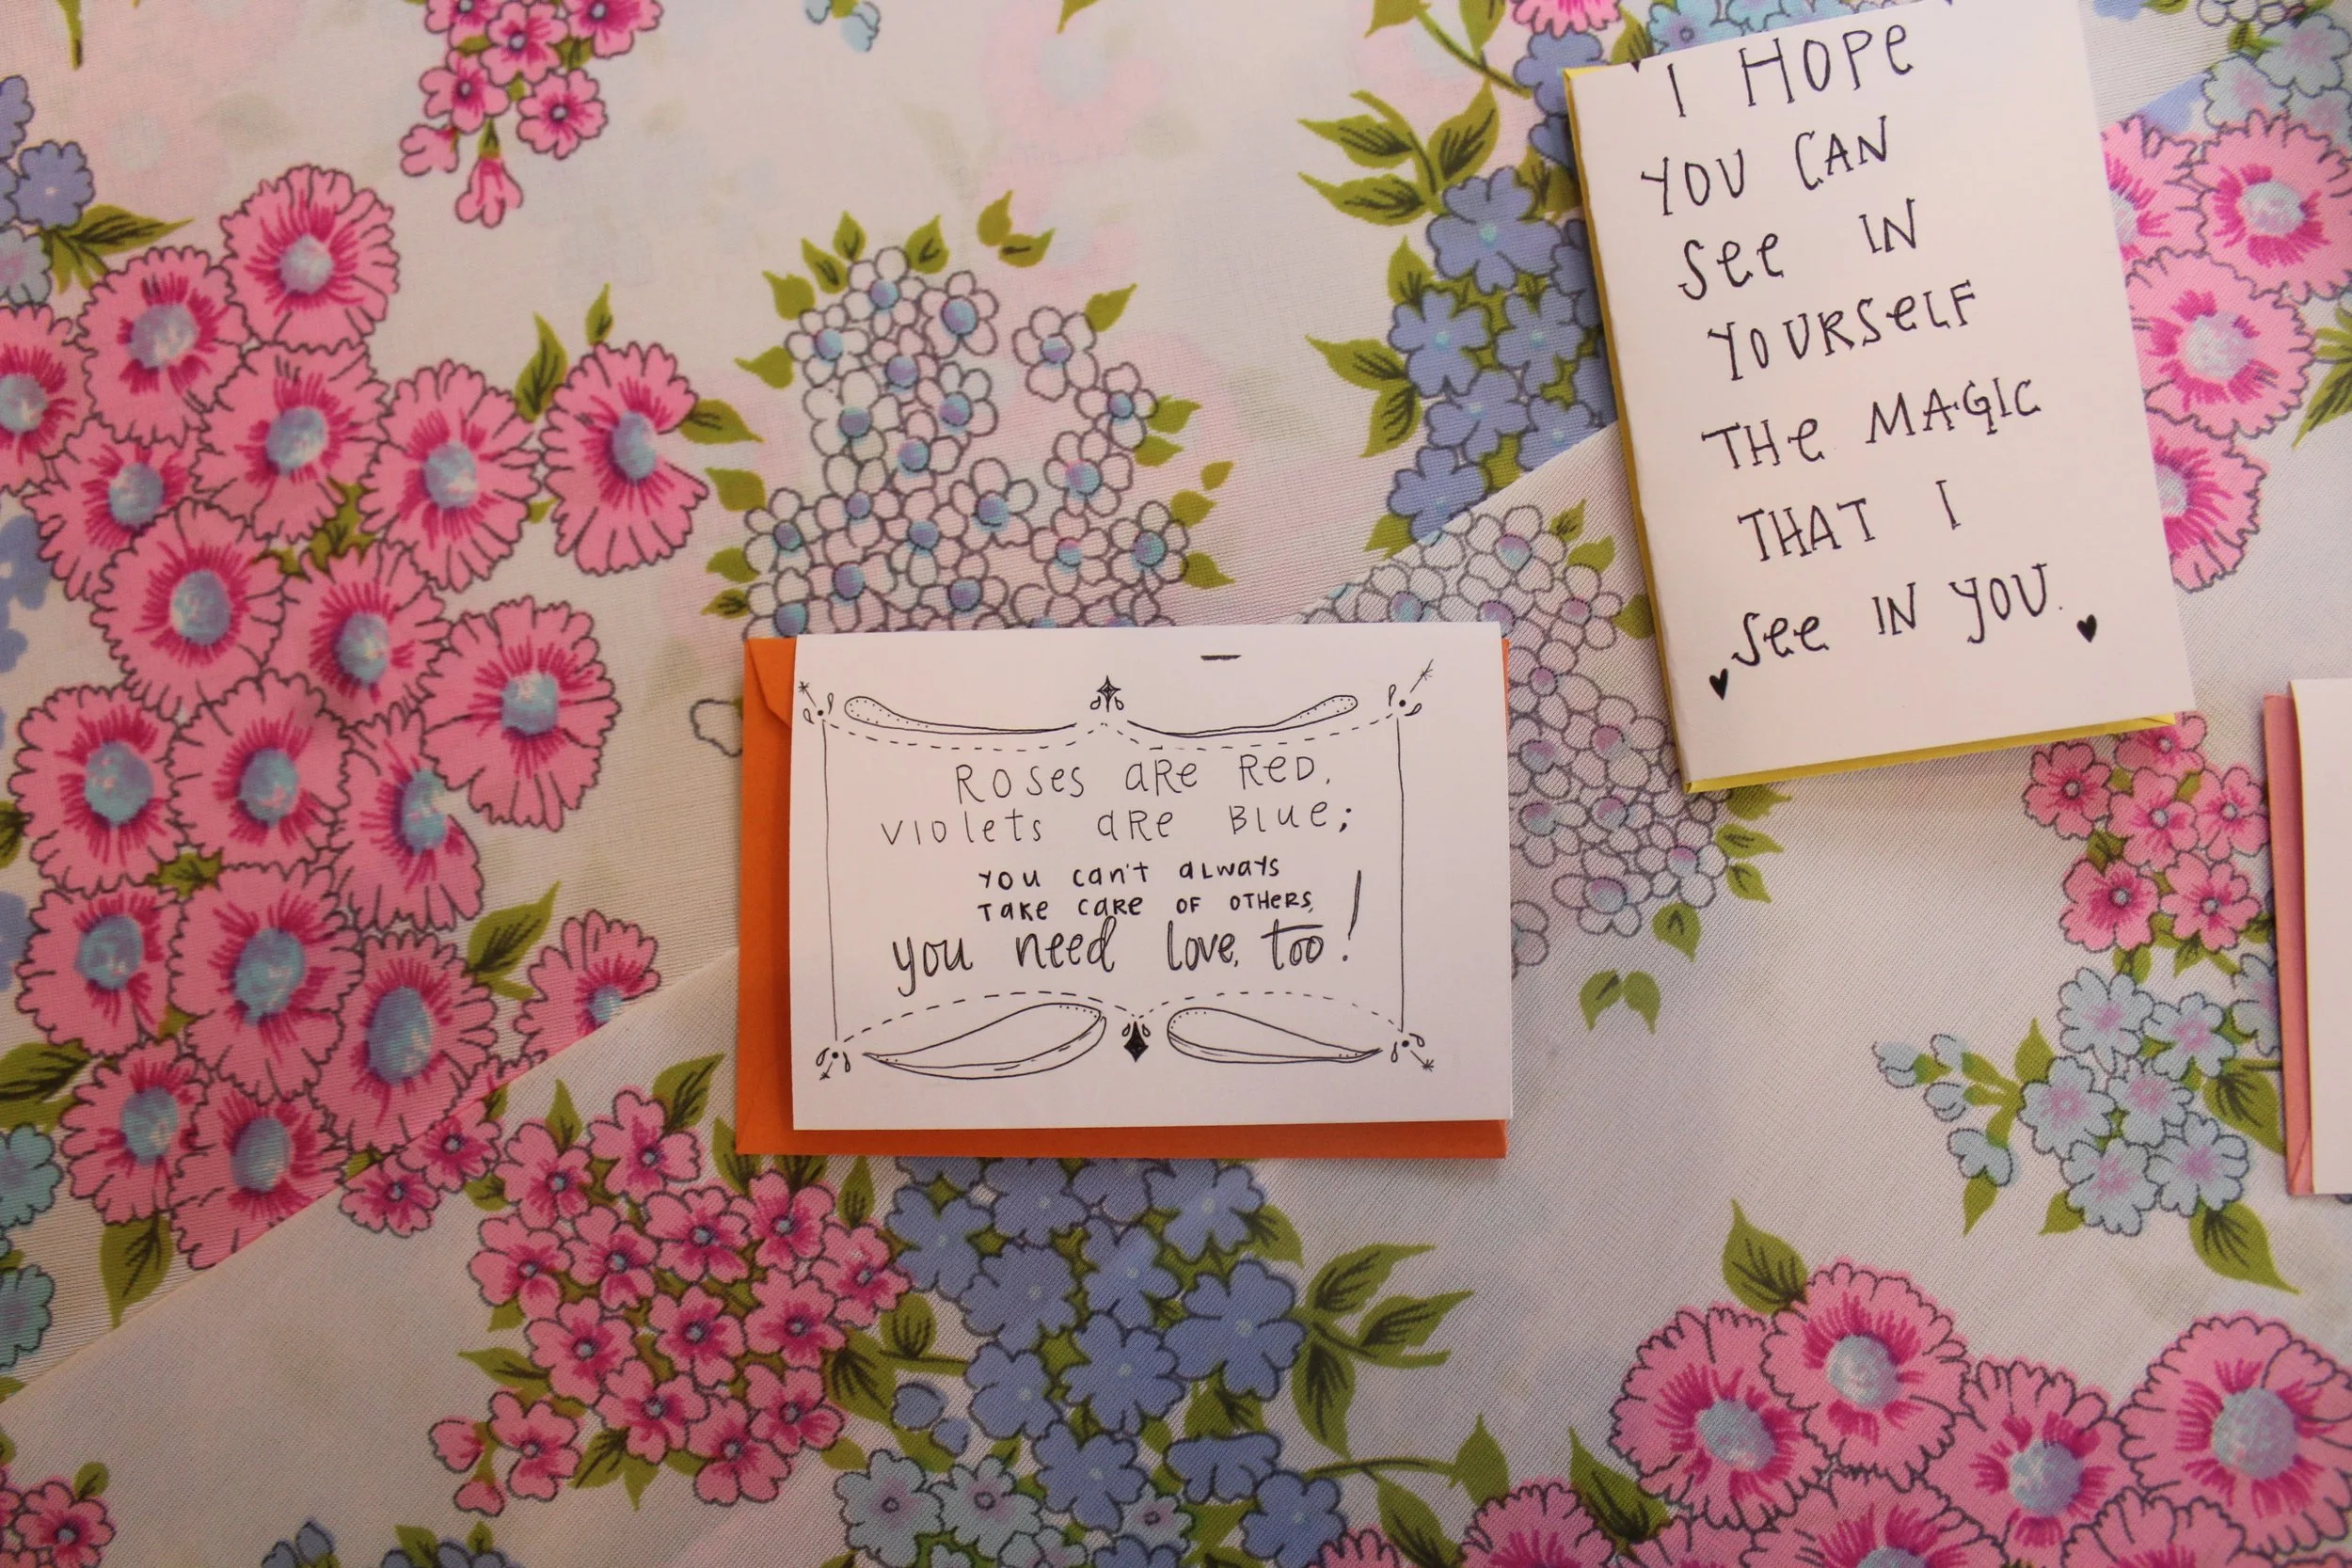 I HOPE
YOU CAN
See IN
YOURSeLF
THe MAGIC
THAT I
See IN YOU.
ROSes aRe ReD,
VIOlets aRe BLue;
YOU can't aLways
TaKe CaRe OF OTHeRS,
you need love, too!